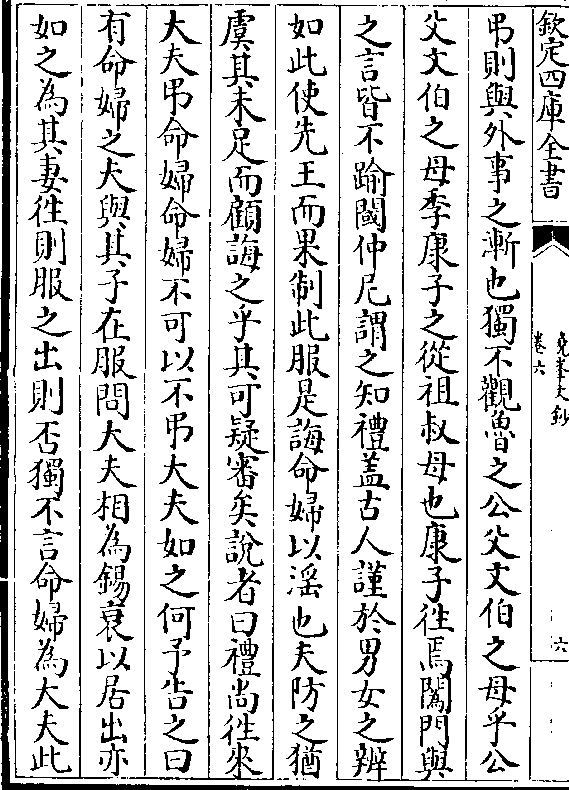 欽定四庫全書
堯峯文鈔
卷六
六
弔則與外事之漸也獨不觀魯之公父文伯之母乎公
父文伯之母季康子之從祖叔母也康子徃焉闖門與
之言皆不踰閾仲尼謂之知禮葢古人謹於男女之辨
如此使先王而果制此服是誨命婦以淫也夫防之猶
虞其未足而顧誨之乎其可疑審矣說者曰禮尚徃來
大夫弔命婦命婦不可以不弔大夫如之何予告之曰
有命婦之夫與其子在服問大夫相為錫衰以居出亦
如之為其妻徃則服之出則否獨不言命婦為大夫此